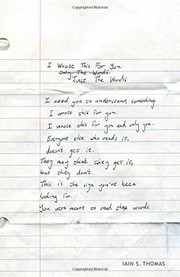 I WROTE THIS FOR YOU
Only The Words
JUST THE WORDS
I need you to understand something.
I wrote this for you.
I wrote this for you and only you.
Everyone else who reads it,
doesn't get it.
They may think they get it,
but they don't.
This is the sign you've been
looking for.
You were meant to read these words.
IAIN S. THOMAS